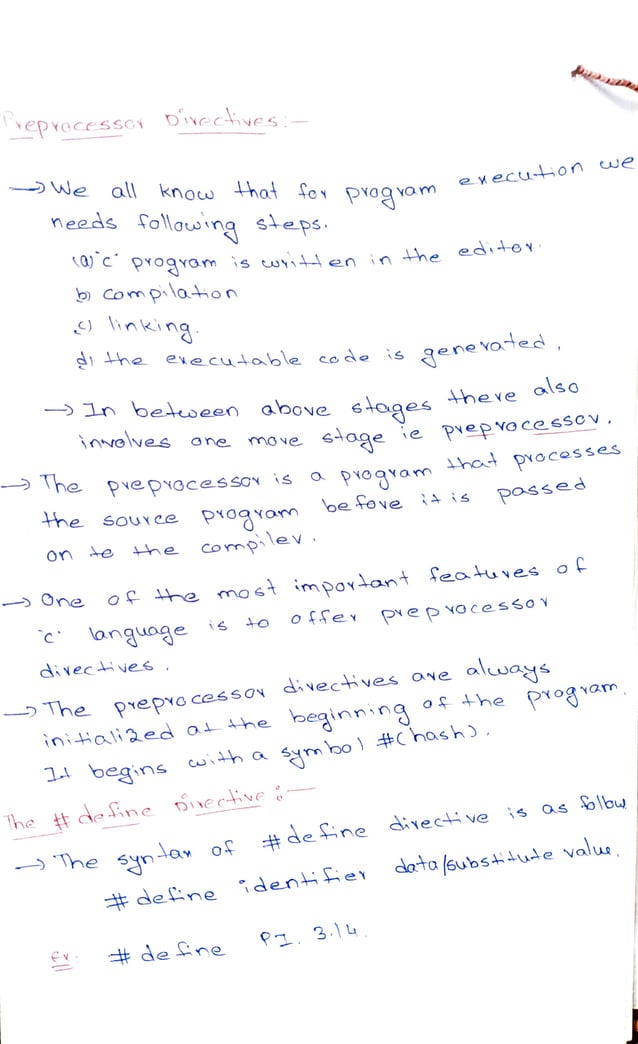 Preprocessor Directives:-
→ We all know that for program execution we
needs following steps.
(a) 'c' program is written in the editor.
b) compilation
c) linking.
d) the executable code is generated.
→ In between above stages there also
involves one more stage ie preprocessor.
→ The preprocessor is a program that processes
the source program before it is passed
on to the compiler.
→ One of the most important features of
'c' language is to offer preprocessor
directives.
→ The preprocessor directives are always
initialized at the beginning of the program.
It begins with a symbol #(hash).
The #define Directive:-
→ The syntax of #define directive is as follow
#define identifier data/substitute value.
Ex: #define PI 3.14.